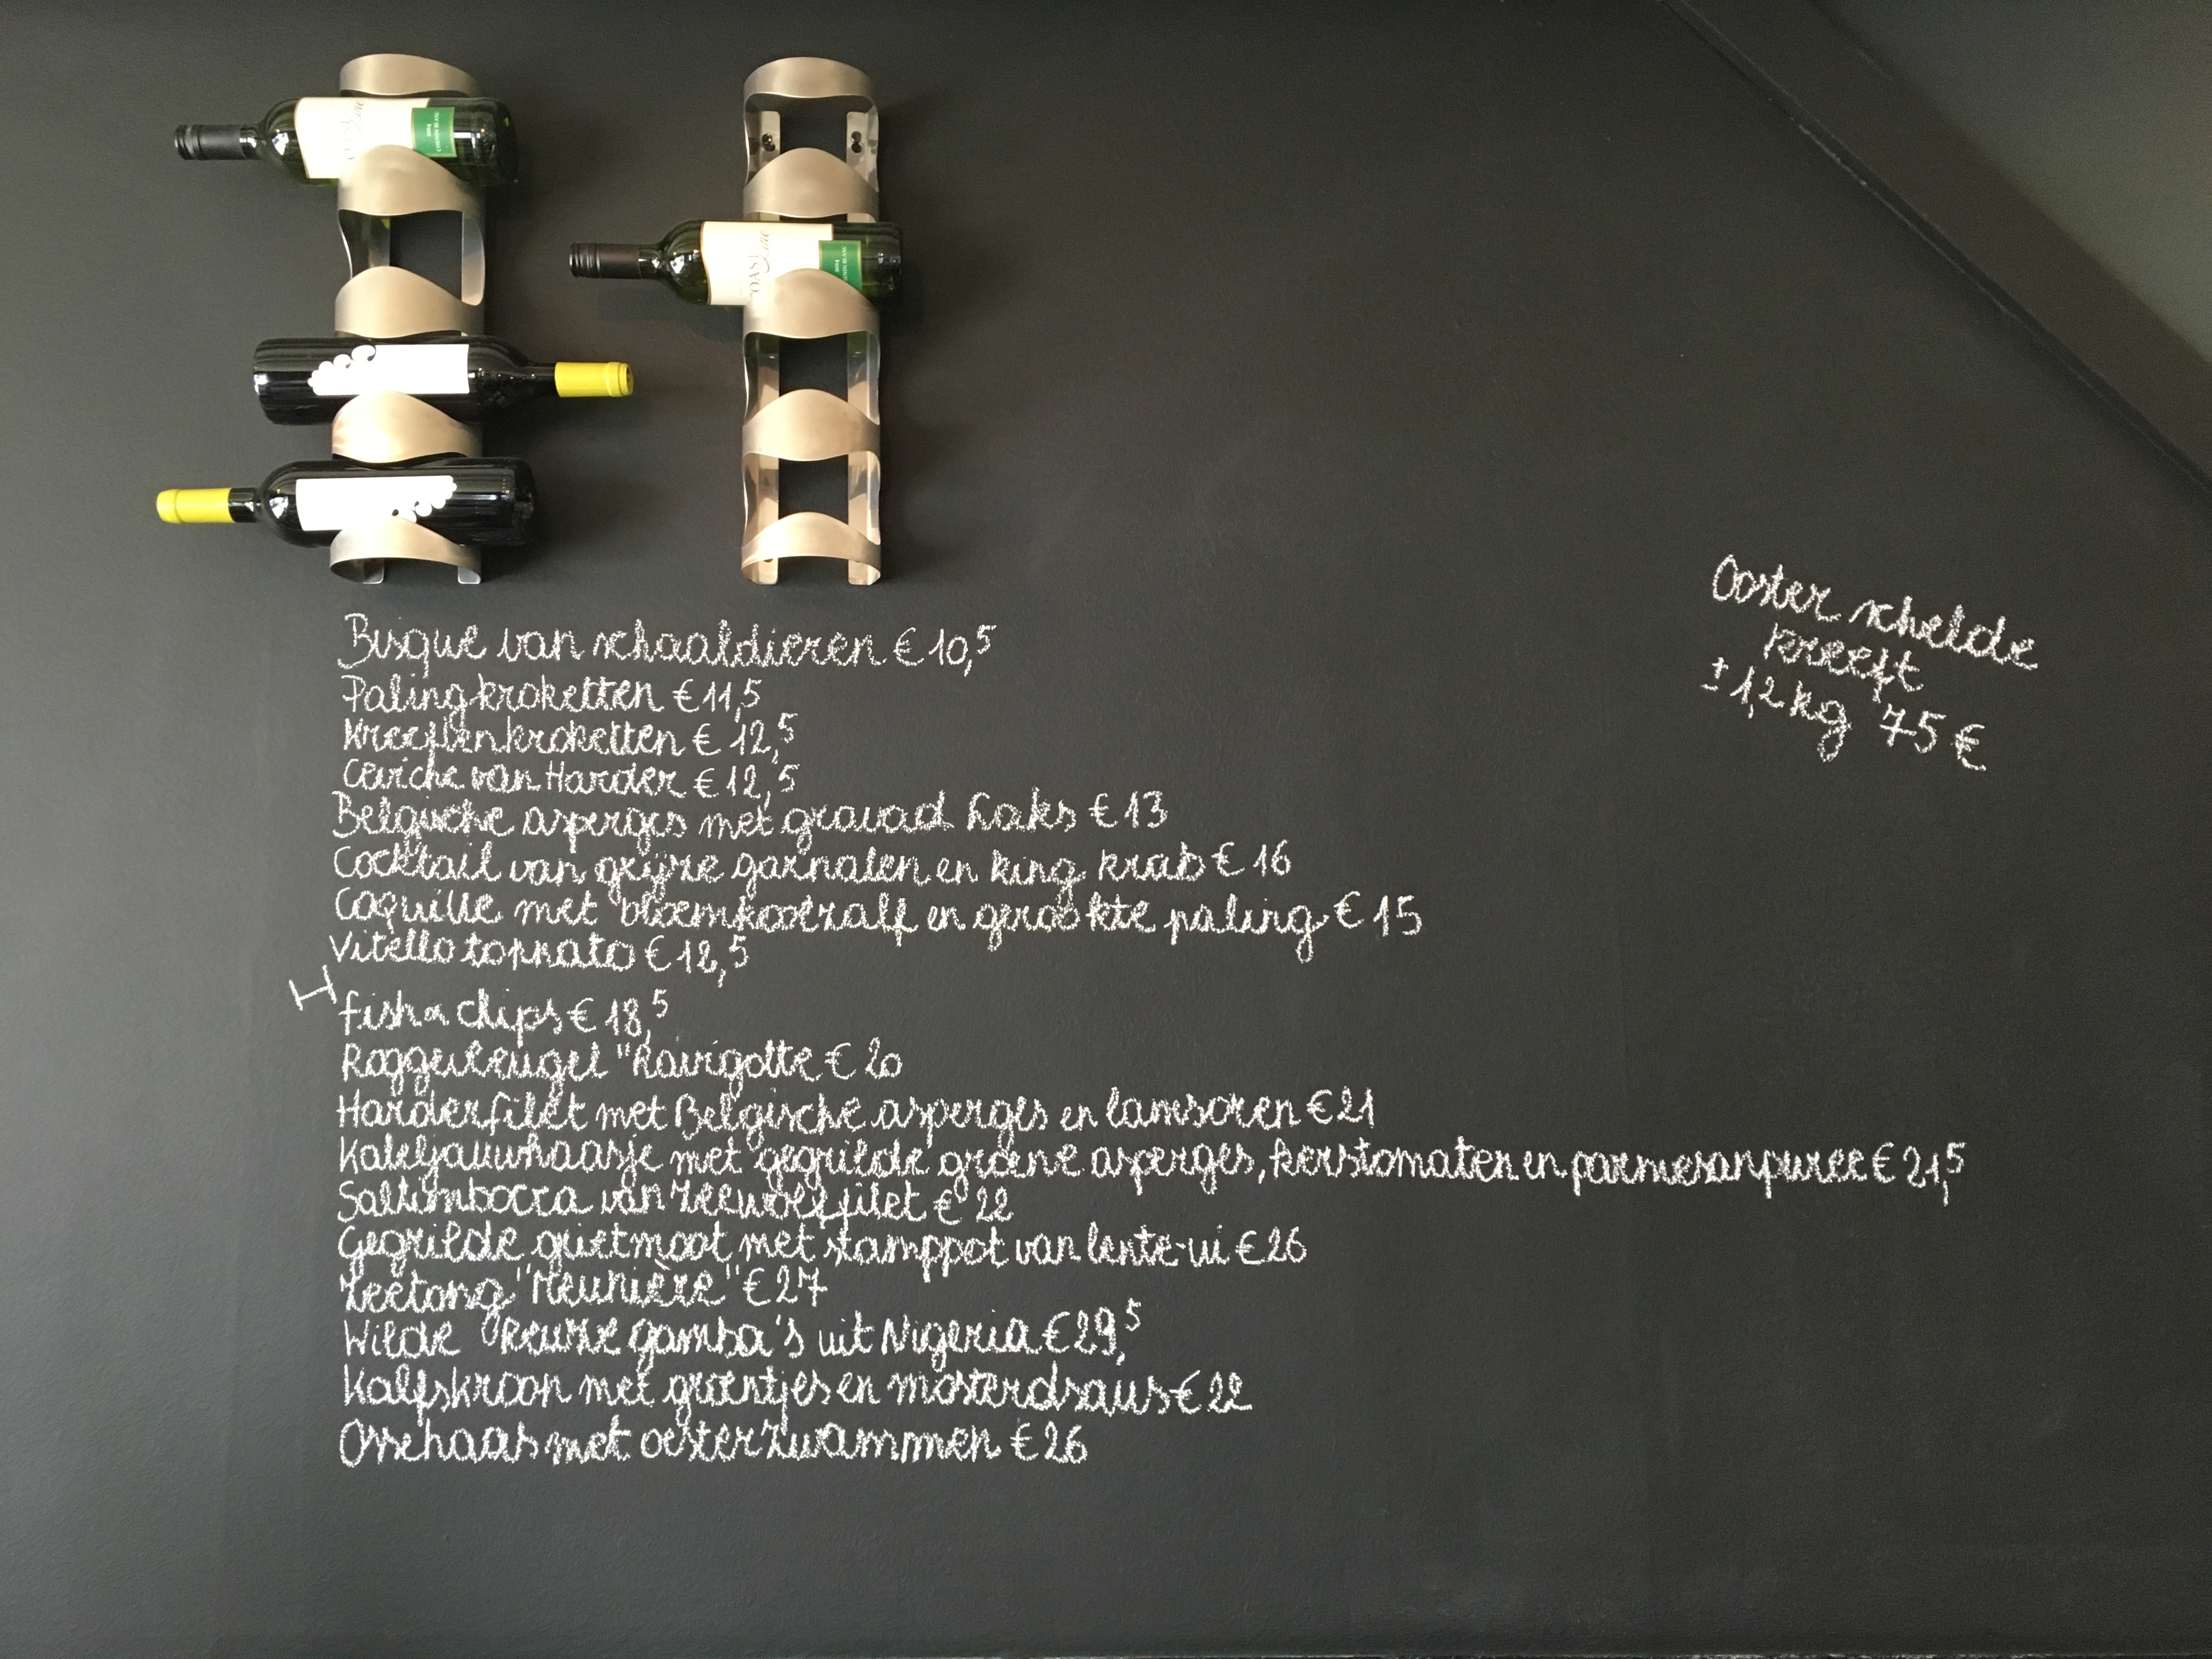 COAST line
2014
CHENIN BLANC
COAST line
2014
CHENIN BLANC
Bisque van schaaldieren € 10,5
Palingkroketten € 11,5
Kreeftenkroketten € 12,5
Ceviche van Harder € 12,5
Belgische asperges met gravad Laks € 13
Cocktail van grijze garnalen en king krab € 16
Coquille met bloemkoolzalf en gerookte paling € 15
Vitello tonnato € 12,5
H
fish & chips € 18,5
Roggevleugel "Ravigotte € 20
Harderfilet met Belgische asperges en lamsoren € 21
Kabeljauwhaasje met gegrilde groene asperges, kerstomaten en parmesanpuree € 21,5
Saltimbocca van zeewolffilet € 22
Gegrilde grietmoot met stamppot van lente-ui € 26
Zeetong "Meunière" € 27
Wilde Reuze gamba's uit Nigeria € 29,5
Kalfskroon met groentjes en mosterdsaus € 22
Ossehaas met oesterzwammen € 26
Ooster schelde
kreeft
± 1,2 kg 75 €